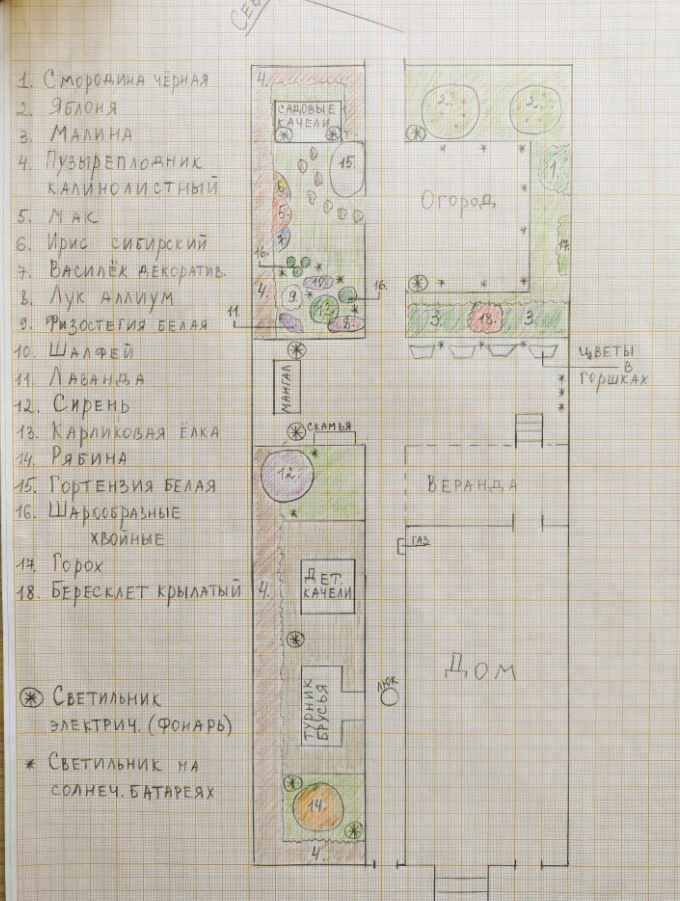 СЕВ
1. Смородина чёрная
2. Яблоня
3. Малина
4. Пузыреплодник
калинолистный
5. Мак
6. Ирис сибирский
7. Василёк декоратив.
8. Лук аллиум
9. Физостегия белая
10. Шалфей
11. Лаванда
12. Сирень
13. Карликовая ёлка
14. Рябина
15. Гортензия белая
16. Шарообразные
хвойные
17. Горох
18. Бересклет крылатый
Светильник
электрич. (фонарь)
* Светильник на
солнеч. батареях
4.
САДОВЫЕ
КАЧЕЛИ
15.
6.
5.
7.
16.
10.
4.
9.
13.
16.
11
8.
МАНГАЛ
СКАМЬЯ
12.
4.
ДЕТ.
КАЧЕЛИ
ТУРНИК
БРУСЬЯ
ЛЮК
14.
4.
2.
2.
1.
Огород
17.
3.
18.
3.
ЦВЕТЫ
В
ГОРШКАХ
ВЕРАНДА
ГАЗ
ДОМ